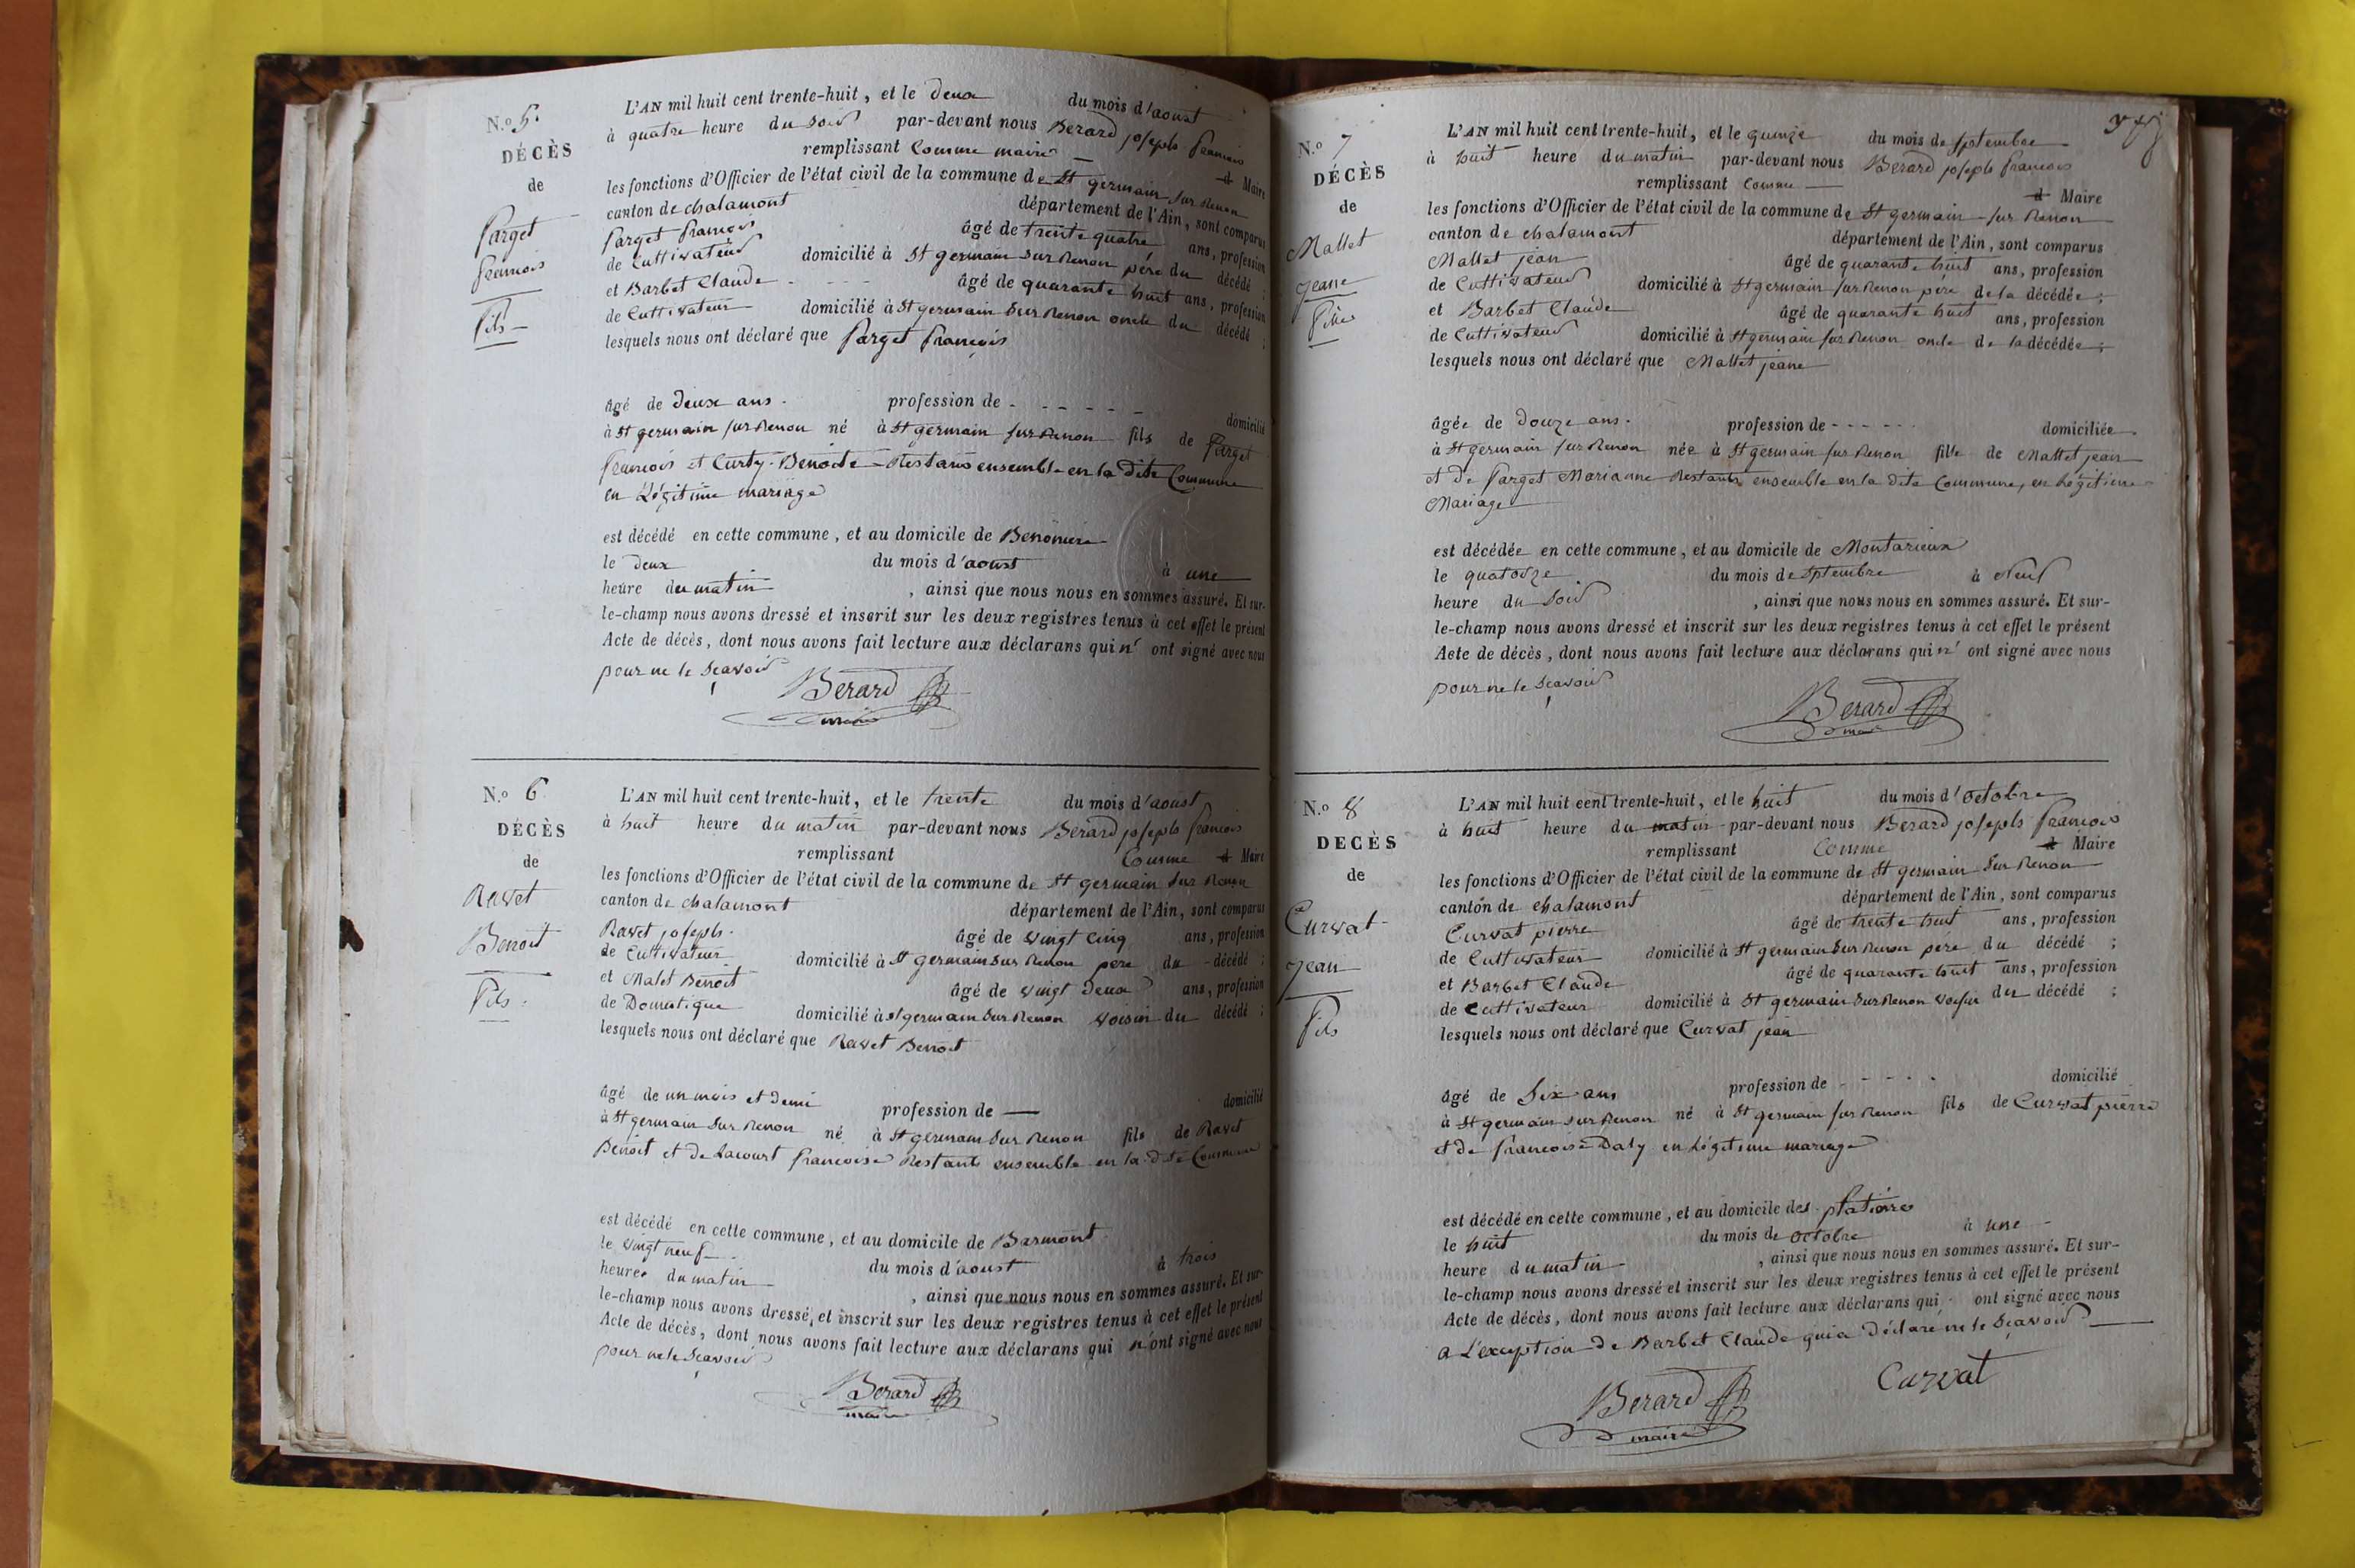 N.o 5.
DÉCÈS
de
Parget
francois
fils
L'AN mil huit cent trente-huit, et le deux du mois d'aoust
à quatre heure du soir par-devant nous Berard joseph francois
remplissant Comme maire Maire
les fonctions d'Officier de l'état civil de la commune de St germain sur Renon
canton de chalamont département de l'Ain, sont comparus
Parget francois âgé de trente quatre ans, profession
de Cultivateur domicilié à St germain sur Renon père du décédé ;
et Barbet Claude âgé de quarante huit ans, profession
de Cultivateur domicilié à St germain sur Renon oncle du décédé ;
lesquels nous ont déclaré que Parget françois
âgé de deux ans. profession de - - - - - domicilié
à St germain sur Renon né à St germain sur Renon fils de Parget
francois et Curty Benoite Restans ensemble en la dite Commune
en Légitime mariage
est décédé en cette commune, et au domicile de
le deux du mois d'aoust à une
heure du matin , ainsi que nous nous en sommes assuré. Et sur-
le-champ nous avons dressé et inscrit sur les deux registres tenus à cet effet le présent
Acte de décès, dont nous avons fait lecture aux déclarans qui n' ont signé avec nous
pour ne le sçavoir
Berard
maire
N.o 6
DÉCÈS
de
Ravet
Benoit
fils.
L'AN mil huit cent trente-huit, et le trente du mois d'aoust
à huit heure du matin par-devant nous Berard joseph francois
remplissant Comme Maire
les fonctions d'Officier de l'état civil de la commune de St germain sur Renon
canton de chalamont département de l'Ain, sont comparus
Ravet joseph. âgé de vingt cinq ans, profession
de Cultivateur domicilié à St germain sur Renon pere du décédé ;
et Malet Benoit âgé de vingt deux ans, profession
de Domestique domicilié à St germain sur Renon voisin du décédé ;
lesquels nous ont déclaré que Ravet Benoit
âgé de un mois et demi profession de — domicilié
à St germain sur Renon né à St germain sur Renon fils de Ravet
Benoit et de Lacourt francoise Restants ensemble en la dite Commune
est décédé en cette commune, et au domicile de Barmont
le vingt neuf du mois d'aoust à trois
heures du matin , ainsi que nous nous en sommes assuré. Et sur-
le-champ nous avons dressé et inscrit sur les deux registres tenus à cet effet le présent
Acte de décès, dont nous avons fait lecture aux déclarans qui n'ont signé avec nous
pour ne le sçavoir
Berard
maire
N.o 7
DÉCÈS
de
Mallet
jeane
fille
L'AN mil huit cent trente-huit, et le quinze du mois de septembre
à huit heure du matin par-devant nous Berard joseph francois
remplissant Comme Maire
les fonctions d'Officier de l'état civil de la commune de St germain sur Renon
canton de chalamont département de l'Ain, sont comparus
Mallet jean âgé de quarante huit ans, profession
de Cultivateur domicilié à St germain sur Renon père de la décédée ;
et Barbet Claude âgé de quarante huit ans, profession
de Cultivateur domicilié à St germain sur Renon oncle de la décédée ;
lesquels nous ont déclaré que Mallet jeane
âgée de douze ans. profession de - - - - - domiciliée
à St germain sur Renon née à St germain sur Renon fille de Mallet jean
et de Parget Marianne Restants ensemble en la dite Commune, en Légitime
Mariage
est décédée en cette commune, et au domicile de Montarieux
le quatorze du mois de septembre à neuf
heure du soir , ainsi que nous nous en sommes assuré. Et sur-
le-champ nous avons dressé et inscrit sur les deux registres tenus à cet effet le présent
Acte de décès, dont nous avons fait lecture aux déclarans qui n' ont signé avec nous
pour ne le sçavoir
Berard
maire
N.o 8
DECÈS
de
Curvat
jean
fils
L'AN mil huit cent trente-huit, et le huit du mois d'octobre
à huit heure du matin par-devant nous Berard joseph francois
remplissant Comme Maire
les fonctions d'Officier de l'état civil de la commune de St germain sur Renon
canton de chalamont département de l'Ain, sont comparus
Curvat pierre âgé de trente huit ans, profession
de Cultivateur domicilié à St germain sur Renon pere du décédé ;
et Barbet Claude âgé de quarante huit ans, profession
de Cultivateur domicilié à St germain sur Renon voisin du décédé ;
lesquels nous ont déclaré que Curvat jean
âgé de Six ans profession de - - - - - domicilié
à St germain sur Renon né à St germain sur Renon fils de Curvat pierre
et de francoise Daly en Légitime mariage
est décédé en cette commune, et au domicile des platières
le huit du mois de octobre à une
heure du matin , ainsi que nous nous en sommes assuré. Et sur-
le-champ nous avons dressé et inscrit sur les deux registres tenus à cet effet le présent
Acte de décès, dont nous avons fait lecture aux déclarans qui ont signé avec nous
a L'exception de Barbet Claude qui a déclaré ne le sçavoir
Berard Curvat
maire